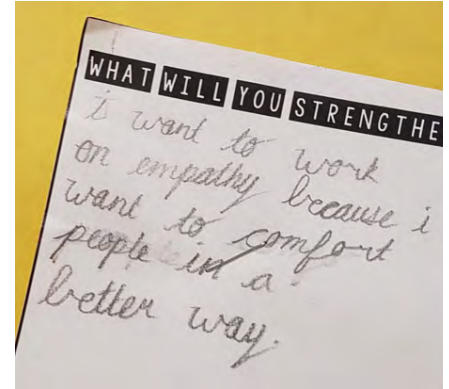 WHAT WILL YOU STRENGTHE
i want to work
on empathy because i
want to comfort
people in a
better way.